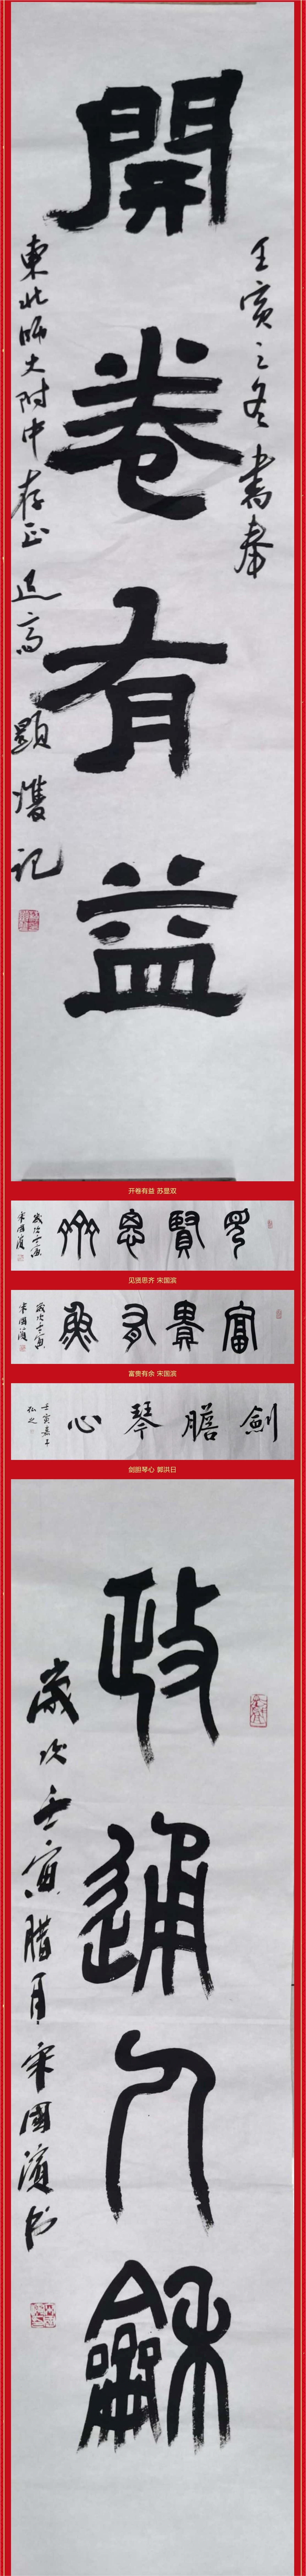 壬寅之冬書奉
開卷有益
東北師大附中存正
顯雙記
开卷有益 苏显双
見賢思齊
歲次壬寅
宋國濱
见贤思齐 宋国滨
富貴有魚
歲次壬寅
宋國濱
富贵有余 宋国滨
劍膽琴心
壬寅嘉平
剑胆琴心 郭洪日
政通人龢
歲次壬寅腊月宋國濱书